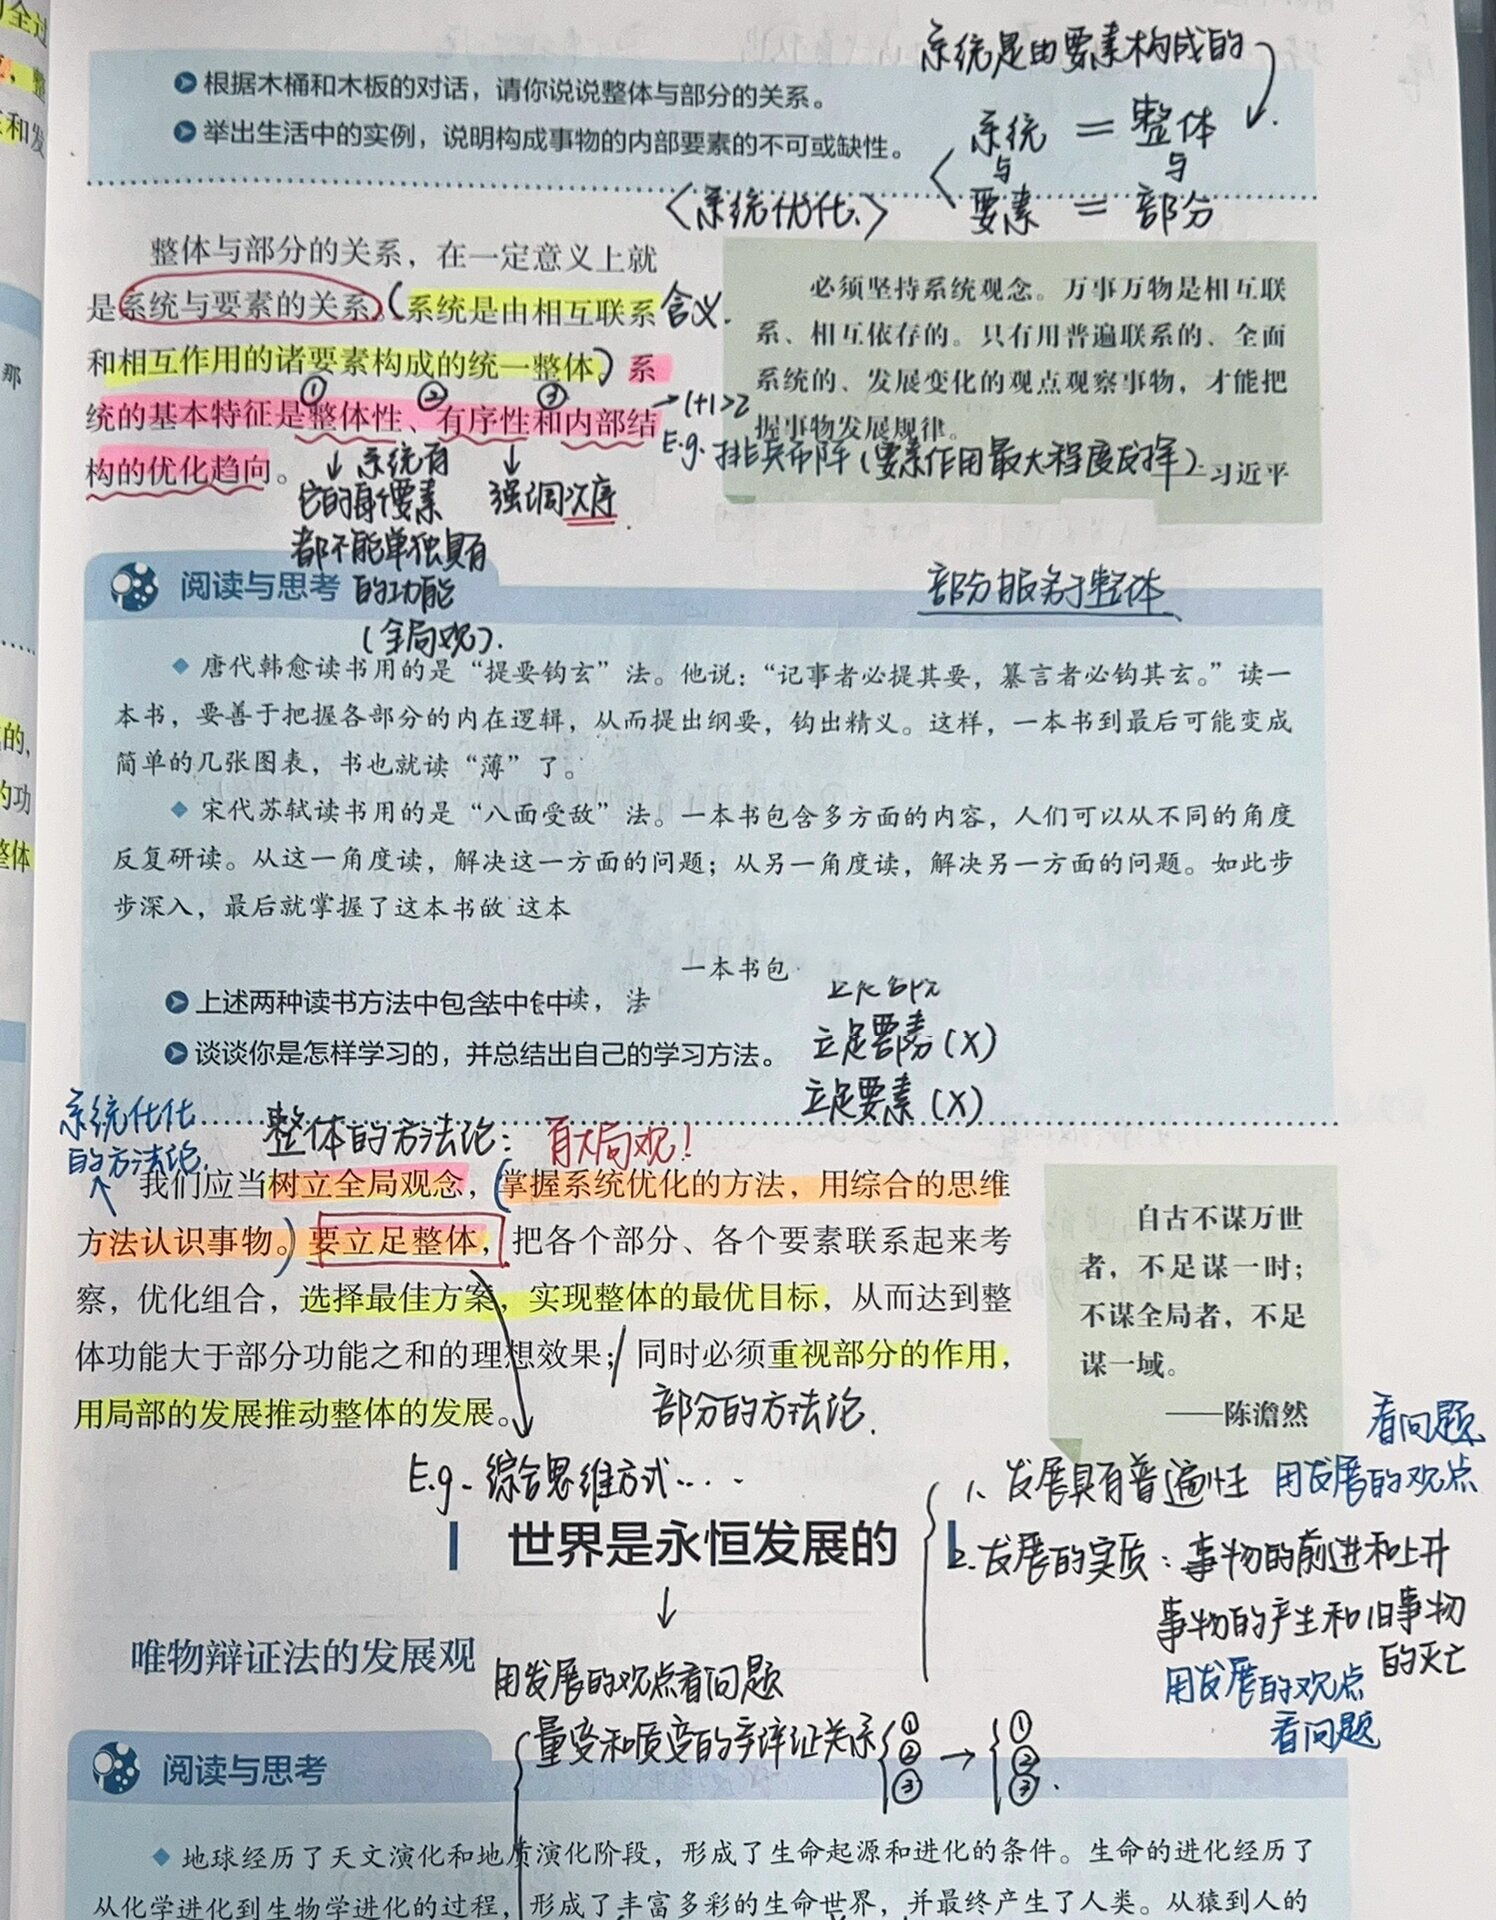 全过
，整
和发
那
的，
的功
整体
系统是由要素构成的
➤ 根据木桶和木板的对话，请你说说整体与部分的关系。
➤ 举出生活中的实例，说明构成事物的内部要素的不可或缺性。
系统 = 整体
与 与
要素 = 部分
〈系统优化〉
整体与部分的关系，在一定意义上就
是系统与要素的关系。(系统是由相互联系 含义.
和相互作用的诸要素构成的统一整体)系
① ② ③
统的基本特征是整体性、有序性和内部结
构的优化趋向。
→1+1>2
E.g. 排兵布阵(要素作用最大程度发挥)
↓系统有
它的每个要素
都不能单独具有
的功能
(全局观).
↓
强调次序
必须坚持系统观念。万事万物是相互联
系、相互依存的。只有用普遍联系的、全面
系统的、发展变化的观点观察事物，才能把
握事物发展规律。
习近平
阅读与思考
部分服务于整体
◆ 唐代韩愈读书用的是“提要钩玄”法。他说：“记事者必提其要，纂言者必钩其玄。”读一
本书，要善于把握各部分的内在逻辑，从而提出纲要，钩出精义。这样，一本书到最后可能变成
简单的几张图表，书也就读“薄”了。
◆ 宋代苏轼读书用的是“八面受敌”法。一本书包含多方面的内容，人们可以从不同的角度
反复研读。从这一角度读，解决这一方面的问题；从另一角度读，解决另一方面的问题。如此步
步深入，最后就掌握了这本书 这本
一本书包
➤ 上述两种读书方法中包含法中 中读，法
➤ 谈谈你是怎样学习的，并总结出自己的学习方法。
立足 (X)
立足要素 (X)
系统优化
的方法论.
整体的方法论：有大局观！
我们应当树立全局观念，(掌握系统优化的方法，用综合的思维
方法认识事物。)要立足整体，把各个部分、各个要素联系起来考
察，优化组合，选择最佳方案，实现整体的最优目标，从而达到整
体功能大于部分功能之和的理想效果；/同时必须重视部分的作用，
用局部的发展推动整体的发展。
部分的方法论.
自古不谋万世
者，不足谋一时；
不谋全局者，不足
谋一域。
——陈澹然
E.g. 综合思维方式....
世界是永恒发展的
看问题
1、发展具有普遍性 用发展的观点
2.发展的实质：事物的前进和上升
事物的产生和旧事物
的灭亡
用发展的观点
看问题
↓
唯物辩证法的发展观
用发展的观点看问题
量变和质变的辩证关系{①②③ → {①②③.
阅读与思考
◆ 地球经历了天文演化和地质演化阶段，形成了生命起源和进化的条件。生命的进化经历了
从化学进化到生物学进化的过程，形成了丰富多彩的生命世界，并最终产生了人类。从猿到人的